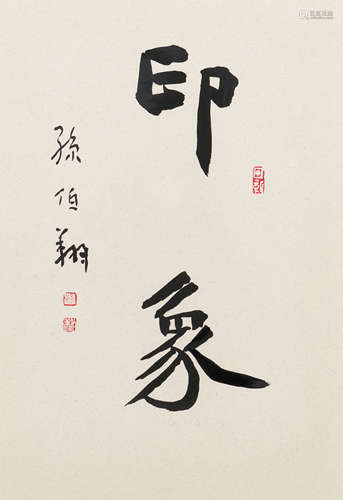 印象
孫伯翔